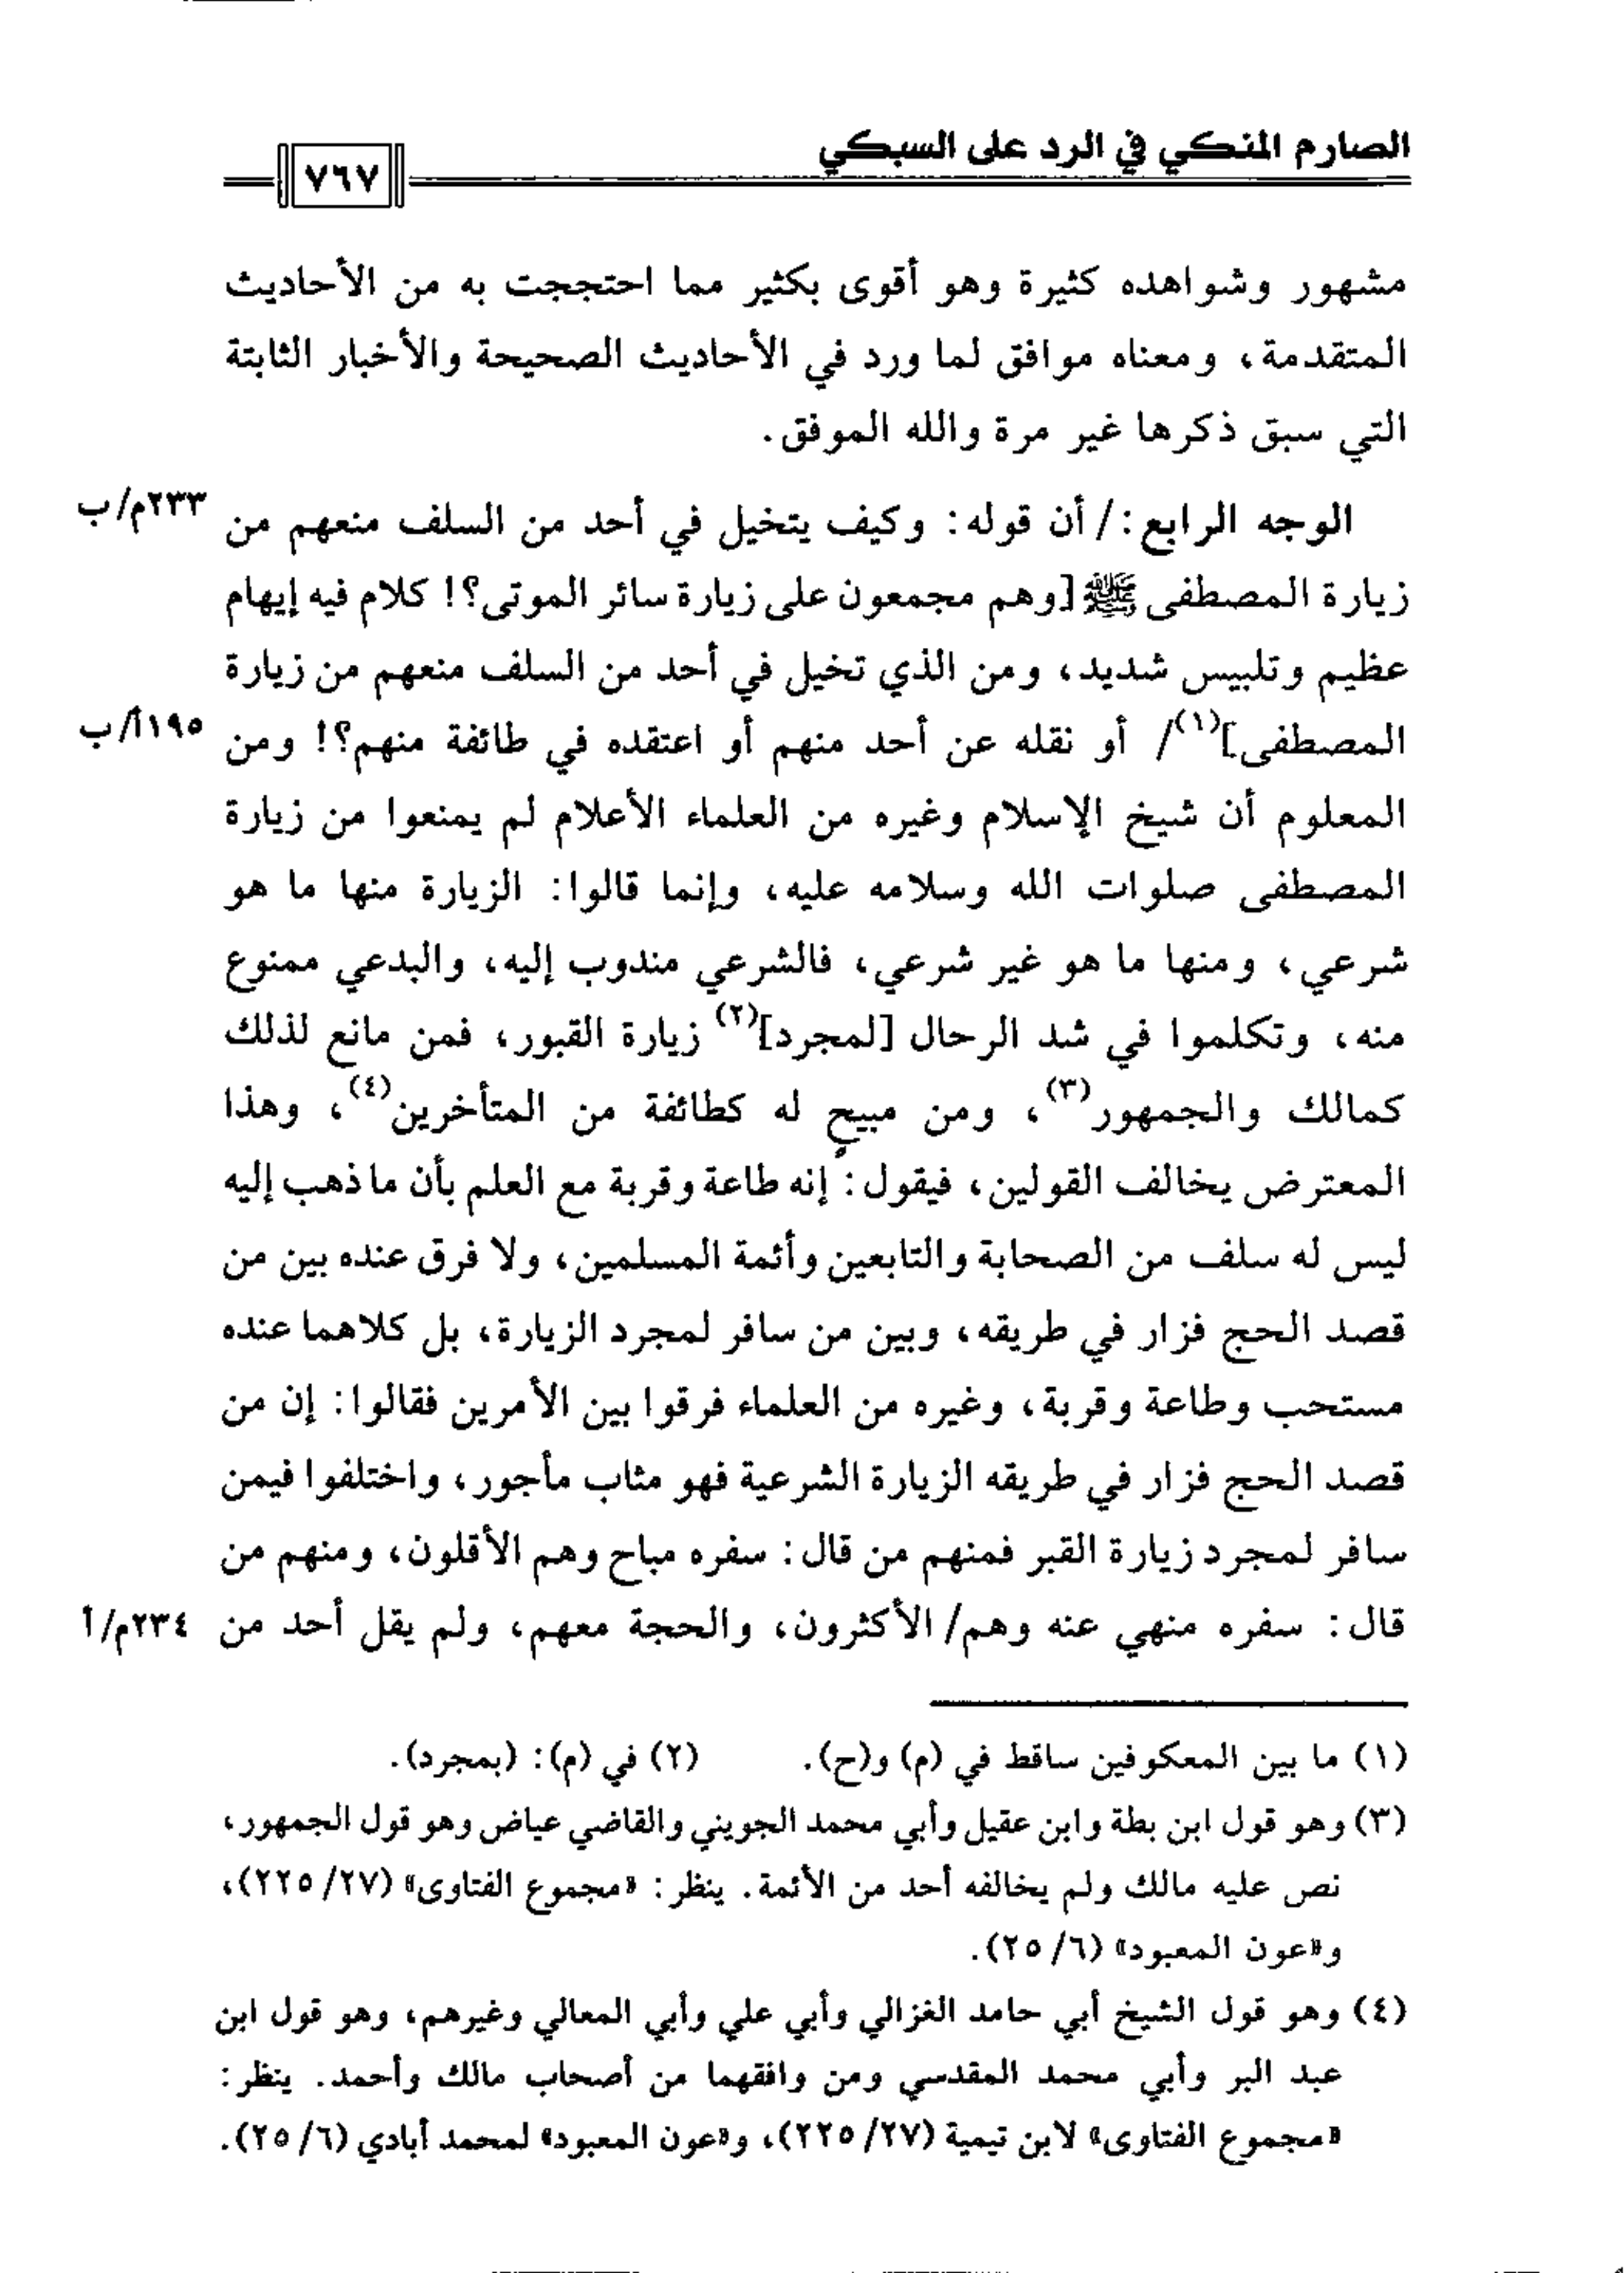 الصارم المنكي في الرد على السبكي
٧٦٧
مشهور وشواهده كثيرة وهو أقوى بكثير مما احتججت به من الأحاديث
المتقدمة، ومعناه موافق لما ورد في الأحاديث الصحيحة والأخبار الثابتة
التي سبق ذكرها غير مرة والله الموفق.
الوجه الرابع: / أن قوله: وكيف يتخيل في أحد من السلف منعهم من ٢٣٣م/ب
زيارة المصطفى ﷺ [وهم مجمعون على زيارة سائر الموتى؟! كلام فيه إيهام
عظيم وتلبيس شديد، ومن الذي تخيل في أحد من السلف منعهم من زيارة
المصطفى](١)/ أو نقله عن أحد منهم أو اعتقده في طائفة منهم؟! ومن ١٩٥أ/ب
المعلوم أن شيخ الإسلام وغيره من العلماء الأعلام لم يمنعوا من زيارة
المصطفى صلوات الله وسلامه عليه، وإنما قالوا: الزيارة منها ما هو
شرعي، ومنها ما هو غير شرعي، فالشرعي مندوب إليه، والبدعي ممنوع
منه، وتكلموا في شد الرحال [لمجرد](٢) زيارة القبور، فمن مانع لذلك
كمالك والجمهور(٣)، ومن مبيحٍ له كطائفة من المتأخرين(٤)، وهذا
المعترض يخالف القولين، فيقول: إنه طاعة وقربة مع العلم بأن ما ذهب إليه
ليس له سلف من الصحابة والتابعين وأئمة المسلمين، ولا فرق عنده بين من
قصد الحج فزار في طريقه، وبين من سافر لمجرد الزيارة، بل كلاهما عنده
مستحب وطاعة وقربة، وغيره من العلماء فرقوا بين الأمرين فقالوا: إن من
قصد الحج فزار في طريقه الزيارة الشرعية فهو مثاب مأجور، واختلفوا فيمن
سافر لمجرد زيارة القبر فمنهم من قال: سفره مباح وهم الأقلون، ومنهم من
قال: سفره منهي عنه وهم/ الأكثرون، والحجة معهم، ولم يقل أحد من ٢٣٤م/أ
(١) ما بين المعكوفين ساقط في (م) و(ح). (٢) في (م): (بمجرد).
(٣) وهو قول ابن بطة وابن عقيل وأبي محمد الجويني والقاضي عياض وهو قول الجمهور،
نص عليه مالك ولم يخالفه أحد من الأئمة. ينظر: «مجموع الفتاوى» (٢٧/ ٢٢٥)،
و«عون المعبود» (٦/ ٢٥).
(٤) وهو قول الشيخ أبي حامد الغزالي وأبي علي وأبي المعالي وغيرهم، وهو قول ابن
عبد البر وأبي محمد المقدسي ومن وافقهما من أصحاب مالك وأحمد. ينظر:
«مجموع الفتاوى» لابن تيمية (٢٧/ ٢٢٥)، و«عون المعبود» لمحمد أبادي (٦/ ٢٥).